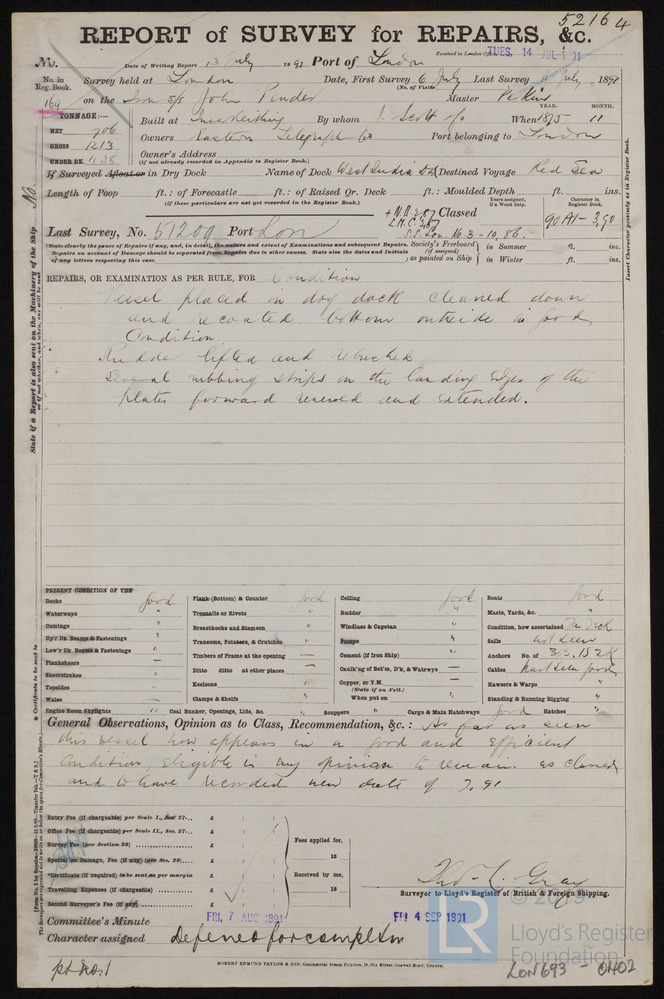 52164
REPORT of SURVEY for REPAIRS, &c.
Received in London Office TUES. 14 JUL 1891
No. Date of Writing Report 13 July 1891 Port of London
No. in Reg. Book. Survey held at London Date, First Survey 6 July Last Survey July 1891
(No. of Visits)
169 on the Iron s/s John Pender Master
TONNAGE:— YEAR. MONTH.
NET 706 Built at Inverkeithing By whom J. Scott & Co When 1875 11
GROSS 1213 Owners Eastern Telegraph Co Port belonging to London
UNDER DK. 1138 Owner's Address
(if not already recorded in Appendix to Register Book.)
If Surveyed Afloat or in Dry Dock Name of Dock West India Dk Destined Voyage Red Sea
Length of Poop ft.: of Forecastle ft.: of Raised Qr. Deck ft.: Moulded Depth ft. ins.
(if these particulars are not yet recorded in the Register Book.)
Years assigned, if a Wood Ship.
Character in Register Book.
+ N.B. 2,87 Classed 90 A1 - 3,90
L.M.C. 3,87
Last Survey, No. 51209 Port Lon S.S. Lon No. 3 - 10, 86.
(State clearly the cause of Repairs if any, and, in detail, the nature and extent of Examinations and subsequent Repairs.
Repairs on account of Damage should be separated from Repairs due to other causes. State also the dates and Initials
of any letters respecting this case.
Society's Freeboard (if assigned) as painted on Ship
in Summer ft. ins.
in Winter ft. ins.
REPAIRS, OR EXAMINATION AS PER RULE, FOR Condition
Vessel placed in dry dock cleaned down
and recoated bottom outside in good
Condition
Rudder lifted and rebushed
Several rubbing strips on the landing edges of the
plates forward renewed and extended.
PRESENT CONDITION OF THE
Decks good
Waterways "
Comings "
Up'r Dk. Beams & Fastenings "
Low'r Dk. Beams & Fastenings "
Planksheers
Sheerstrakes "
Topsides "
Wales "
Engine Room Skylights "
Plank (Bottom) & Counter good
Treenails or Rivets "
Breasthooks and Stemson "
Transoms, Pointers, & Crutches "
Timbers of Frame at the opening —
Ditto ditto at other places —
Keelsons "
Clamps & Shelfs "
Coal Bunker, Openings, Lids, &c. "
Ceiling good
Rudder "
Windlass & Capstan "
Pumps "
Cement (if Iron Ship) "
Caulk'ng of Bot'm, D'k, & Waterwys —
Copper, or Y.M. (State if on Felt.)
When put on
Scuppers "
Cargo & Main Hatchways good
Boats good
Masts, Yards, &c. "
Condition, how ascertained Fm Deck
Sails not seen
Anchors No. of 3 B. 1 S. 2 K
Cables part seen good
Hawsers & Warps "
Standing & Running Rigging "
Hatches "
General Observations, Opinion as to Class, Recommendation, &c.: As far as seen
this vessel now appears in a good and efficient
Condition, Eligible in my opinion to remain as classed
and to have recorded new date of 7.91
Entry Fee (if chargeable) per Scale I., Sec 27... £ : :
Office Fee (if chargeable) per Scale II., Sec. 27... £ : :
Survey Fee (per Section 28) £ : :
Special or Damage, Fee (if any) (see Sec. 28).... £ : :
*Certificate (if required) to be sent as per margin £
Travelling Expenses (if chargeable) £ : :
Second Surveyor's Fee (if any) £
Fees applied for,
18
Received by me,
18
Thos. C. Gray
Surveyor to Lloyd's Register of British & Foreign Shipping.
Committee's Minute FRI. 7 AUG 1891 FRI 4 SEP 1891
Character assigned Deferred for completion
ROBERT EDMUND TAYLOR & SON, Commercial Steam Printers, 19, Old Street, Goswell Road, London.
LR
© 2019
Lloyd's Register
Foundation
LON693 - 0402
Insert Character precisely as in Register Book.
State if a Report is also sent on the Machinery of the Ship No.